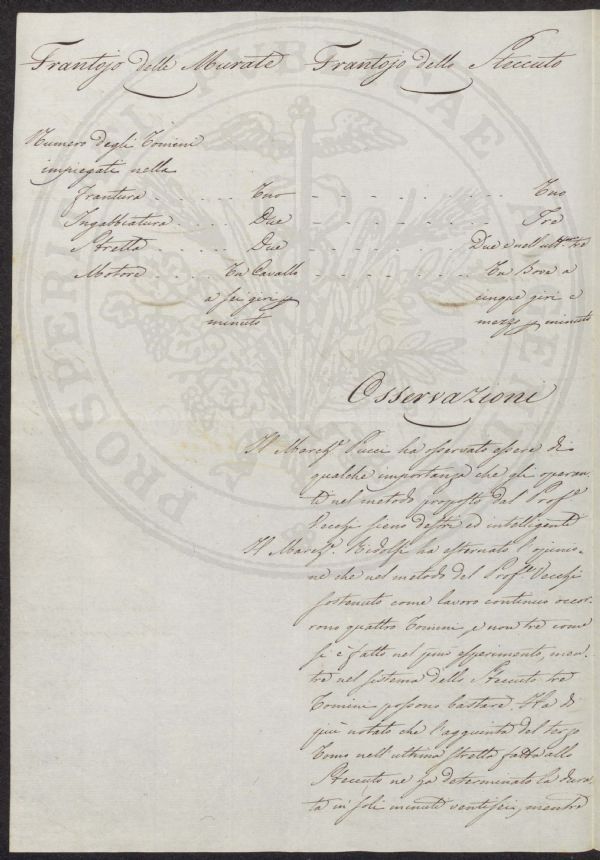 Frantojo delle Murate   Frantojo dello Steccuto
Numero degli Uomini
impiegati nella
Frantura . . . . . . Uno . . . . . . . . . . Uno
Ingabbiatura . . . . . Due . . . . . . . . . . Tre
Stretta . . . . . . . Due . . . . . . . Due e nell'ult.ma tre
Motore . . . . Un Cavallo . . . . . . . . . Un Bove a
a sei giri p. cinque giri e
minuto mezzo p. minuto
Osservazioni
Il March.e Pucci ha osservato essere di
qualche importanza che gli operan-
ti nel metodo proposto dal Prof.e
Pecchj sieno destri ed intelligenti
Il March.e Ridolfi ha esternato l'opinio-
ne che nel metodo del Prof.e Pecchj
sostenuto come lavoro continuo occor-
rono quattro Uomini, e non tre come
si è fatto nel  esperimento, men-
tre nel sistema dello Steccuto tre
Uomini possono bastare. Ha di
più notato che l'aggiunta del terzo
Uomo nell'ultima stretta fatta allo
Steccuto ne ha determinato la dura-
ta in soli minuti ventisei, mentre
PROSPERITATI PUBLICAE AUGENDAE